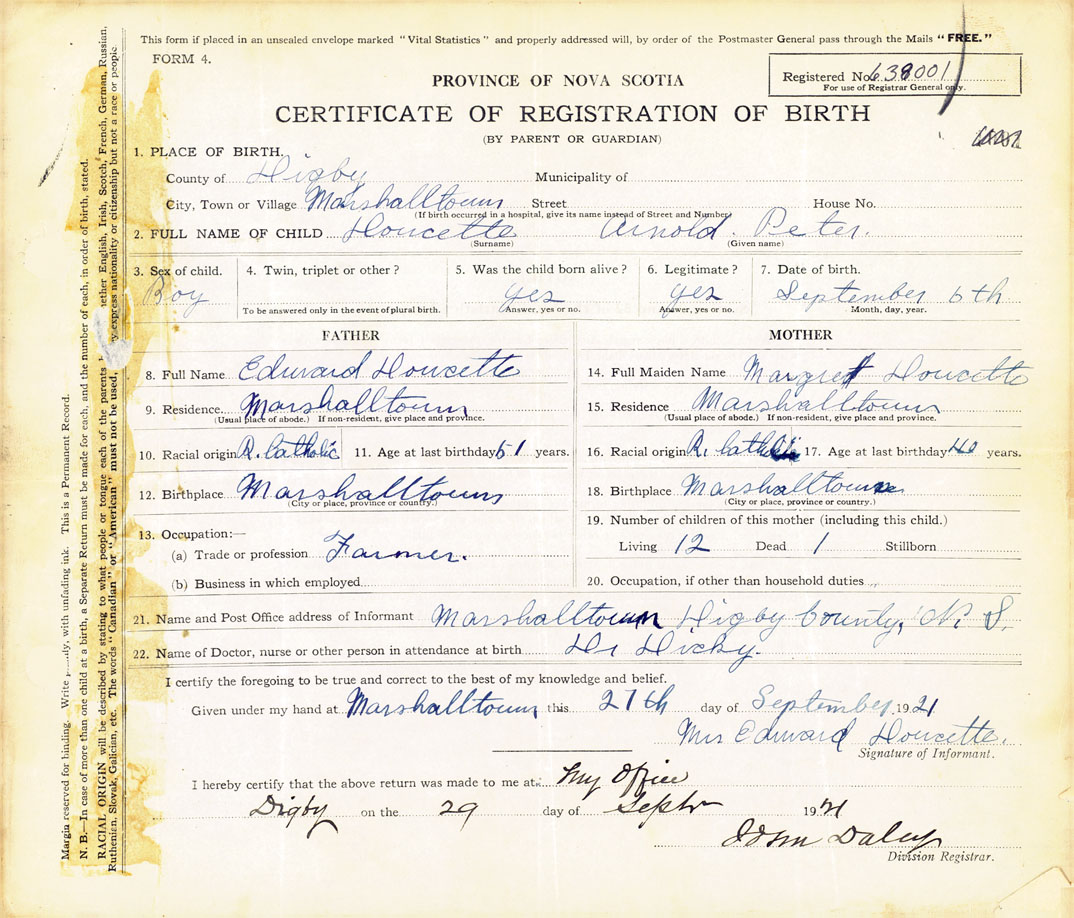 This form if placed in an unsealed envelope marked "Vital Statistics" and properly addressed will, by order of the Postmaster General pass through the Mails "FREE."
FORM 4.
Registered No. 638001
For use of Registrar General only.
PROVINCE OF NOVA SCOTIA
CERTIFICATE OF REGISTRATION OF BIRTH
(BY PARENT OR GUARDIAN)
1. PLACE OF BIRTH.
County of Digby Municipality of
City, Town or Village Marshalltown Street House No.
(If birth occurred in a hospital, give its name instead of Street and Number)
2. FULL NAME OF CHILD Doucette Arnold. Peter.
(Surname) (Given name)
3. Sex of child. 4. Twin, triplet or other? 5. Was the child born alive? 6. Legitimate? 7. Date of birth.
Boy yes yes September 6th
To be answered only in the event of plural birth. Answer, yes or no. Answer, yes or no. Month, day, year.
FATHER
8. Full Name Edward Doucette
9. Residence Marshalltown
(Usual place of abode.) If non-resident, give place and province.
10. Racial origin R. Catholic 11. Age at last birthday 51 years.
12. Birthplace Marshalltown
(City or place, province or country.)
13. Occupation:—
(a) Trade or profession Farmer.
(b) Business in which employed
MOTHER
14. Full Maiden Name Margret Doucette
15. Residence Marshalltown
(Usual place of abode.) If non-resident, give place and province.
16. Racial origin R. Catholic 17. Age at last birthday 40 years.
18. Birthplace Marshalltown
(City or place, province or country.)
19. Number of children of this mother (including this child.)
Living 12 Dead 1 Stillborn
20. Occupation, if other than household duties
21. Name and Post Office address of Informant Marshalltown Digby County, N. S.
22. Name of Doctor, nurse or other person in attendance at birth Dr Dicky.
I certify the foregoing to be true and correct to the best of my knowledge and belief.
Given under my hand at Marshalltown this 27th day of September 1921
Mrs Edward Doucette.
Signature of Informant.
I hereby certify that the above return was made to me at My Office
Digby on the 29 day of Septr 1921
Daley
Division Registrar.
Margin reserved for binding. Write with unfading ink. This is a Permanent Record.
N. B.—In case of more than one child at a birth, a Separate Return must be made for each, and the number of each, in order of birth, stated.
RACIAL ORIGIN will be described by stating to what people or tongue each of the parents ether English, Irish, Scotch, French, German, Russian,
Ruthenian, Slovak, Galician, etc. The words "Canadian" or "American" must not be used, y express nationality or citizenship but not a race or people